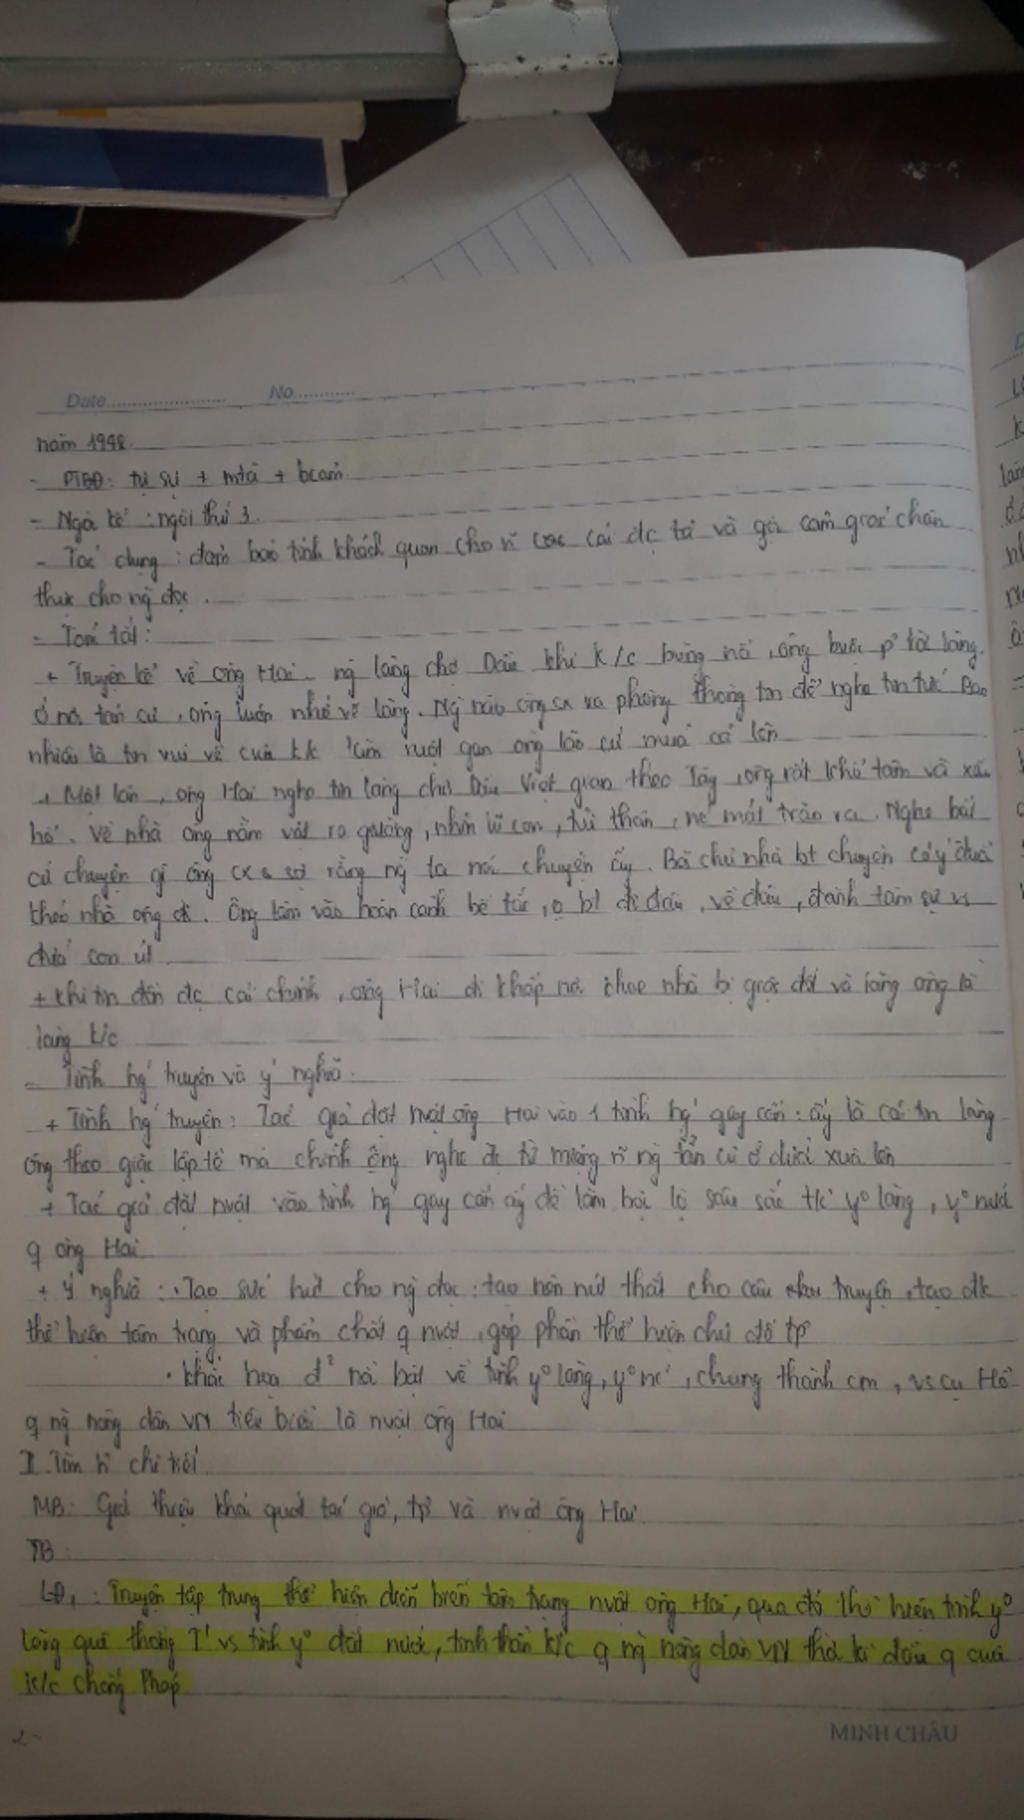 Date No
năm 1948
- PTBĐ: tự sự + mtả + bcảm
- Ngôi kể: ngôi thứ 3
- Tác dụng: đảm bảo tính khách quan cho cái đc tả và gợi cảm giác chân
thực cho ng đọc.
- Tóm tắt:
+ Truyện kể về ông Hai ng làng chợ Dầu khi k/c bùng nổ, ông buộc p rời làng.
Ở nơi tản cư, ông luôn nhớ về làng. Ng nào ông ra phòng thông tin để nghe tin tức Bao
nhiêu là tin vui về của kk làm ruột gan ông lão cứ múa cả lên
+ Một lần, ông Hai nghe tin làng chợ Dầu Việt gian theo Tây, ông rất khổ tâm và xấu
hổ. Về nhà ông nằm vật ra giường, nhìn lũ con, tủi thân, nc mắt trào ra. Nghe bất
cứ chuyện gì ông cx sợ rằng ng ta nói chuyện ấy. Bà chủ nhà bt chuyện có ý đuổi
khéo nhà ông đi. Ông lâm vào hoàn cảnh bế tắc, o bt đi đâu, về đâu, đành tâm sự vs
đứa con út
+ Khi tin đồn đc cải chính, ông Hai đi khắp nơi khoe nhà bị giặc đốt và làng ông là
làng k/c
- Tình hg truyện và ý nghĩa:
+ Tình hg truyện: Tác giả đặt nvật ông Hai vào 1 tình hg gay cấn: ấy là cái tin làng
ông theo giặc lập tề mà chính ông nghe đc từ miệng n ng tản cư ở dưới xuôi lên
+ Tác giả đặt nvật vào tình hg gay cấn ấy để làm bộc lộ sâu sắc t/c yº làng, yº nước
q ông Hai
+ Ý nghĩa: . Tạo sức hút cho ng đọc: tạo nên nút thắt cho câu truyện, tạo đk
thể hiện tâm trạng và phẩm chất q nvật, góp phần thể hiện chủ đề tp
. Khắc họa đ² nổi bật về tình yº làng, yº nc, chung thành cm, vs cụ Hồ
q ng nông dân VN tiêu biểu là nvật ông Hai
II. Tìm h chi tiết
MB: Giới thiệu khái quát tác giả, tp và nvật ông Hai
TB:
LĐ1: Truyện tập trung thể hiện diễn biến tâm trạng nvật ông Hai, qua đó thể hiện tình yº
làng quê thống I' vs tình yº đất nước, tinh thần k/c q ng nông dân VN thời kì đầu q cuộc
k/c chống Pháp
2-
MINH CHÂU